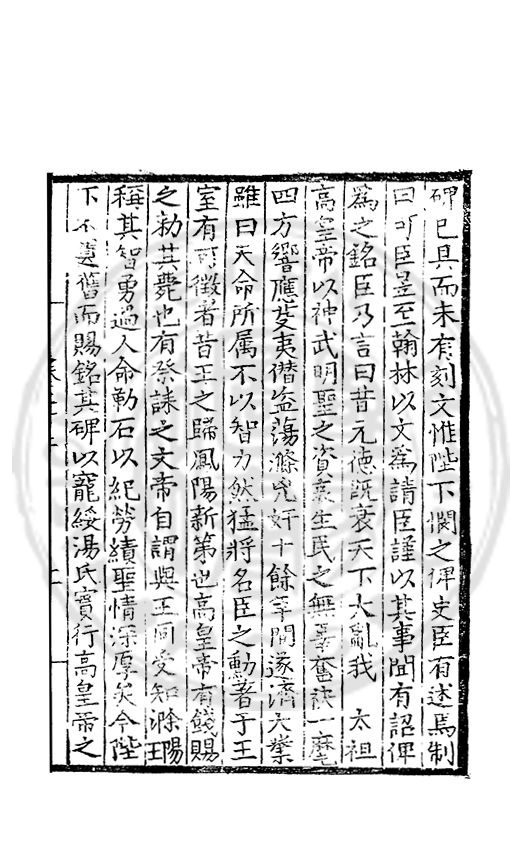 碑已具而未有刻文惟陛下憫之俾史臣有述焉制
曰可臣昱至翰林以文為請臣謹以其事聞有詔俾
爲之銘臣乃言曰昔元德旣衰天下大亂我 太祖
高皇帝以神武明聖之資哀生民之無辜奮袂一麾
四方響應芟夷僭盗蕩滌兇奸十餘年間遂濟大業
雖曰天命所属不以智力然猛將名臣之勳著于王
室有可徵者昔王之歸鳳陽新第也高皇帝有餞賜
之勅其薨也有祭誄之文帝自謂與王同受知滁陽王
稱其智勇過人命勒石以紀勞績聖情深厚矣今陛
下不遺舊而賜銘其碑以寵綏湯氏實行高皇帝之